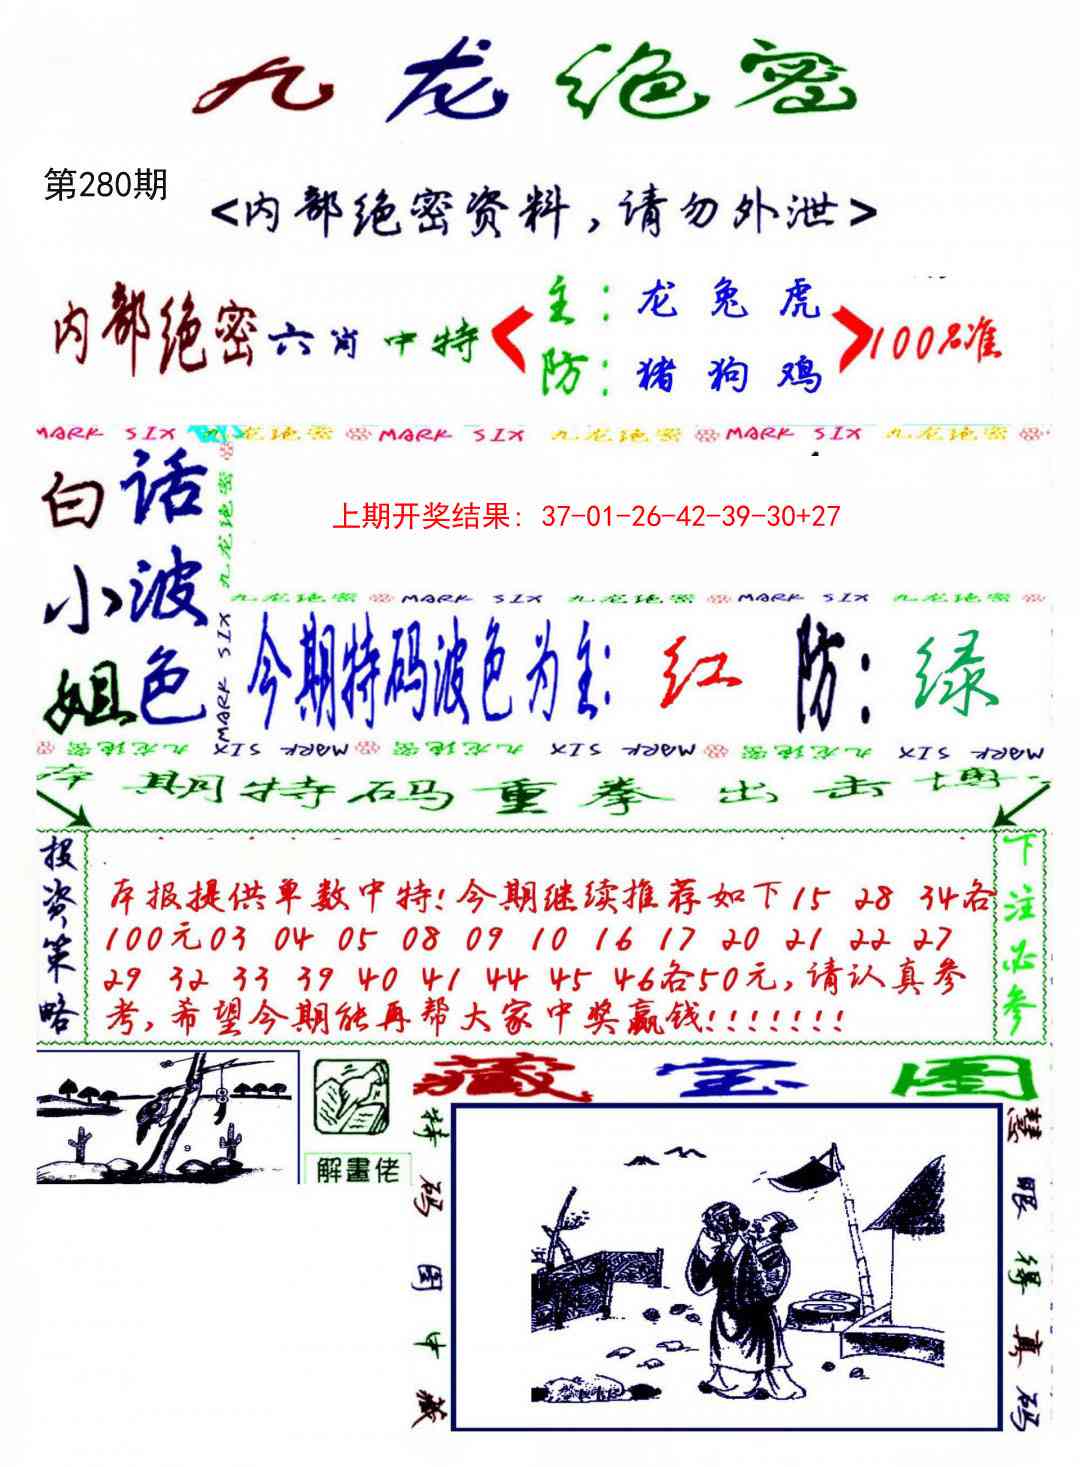 九龙绝密
第280期
<内部绝密资料，请勿外泄>
内部绝密六肖中特
主：龙 兔 虎
防：猪 狗 鸡
100%准
MARK SIX 九龙绝密 MARK SIX 九龙绝密 MARK SIX 九龙绝密
白话
小波
姐色
九龙绝密
MARK SIX
上期开奖结果：37-01-26-42-39-30+27
九龙绝密 MARK SIX 九龙绝密 MARK SIX 九龙绝密
今期特码波色为主：红 防：绿
九龙绝密 MARK SIX 九龙绝密 MARK SIX 九龙绝密 MARK SIX
本期特码重拳出击博
投资策略
本报提供单数中特!今期继续推荐如下15 28 34各
100元03 04 05 08 09 10 16 17 20 21 22 27
29 32 33 39 40 41 44 45 46各50元,请认真参
考,希望今期能再帮大家中奖赢钱!!!!!!!
下注必参
藏宝图
解畫佬
特码图中藏
慧眼得真码